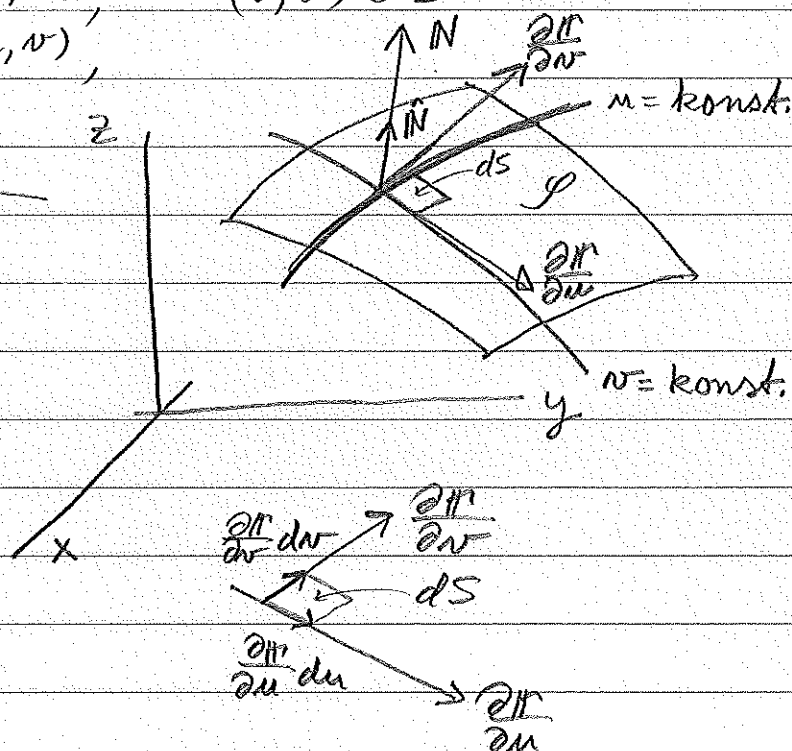 , v)
N
∂r/∂v
N̂
u = konst.
z
dS
𝒮
∂r/∂u
v = konst.
y
x
∂r/∂v dv
∂r/∂v
dS
∂r/∂u du
∂r/∂u